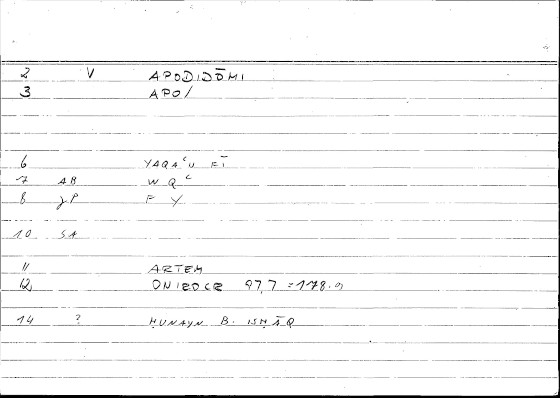 2 V APODIDŌMI
3 APO/
6 YAQAʿU FĪ
7 AB W Q ʿ
8 JP F Y
10 SA
11 ARTEM
12 ONIROCR 97,7 = 178.9
14 ? ḤUNAYN B. ISḤĀQ